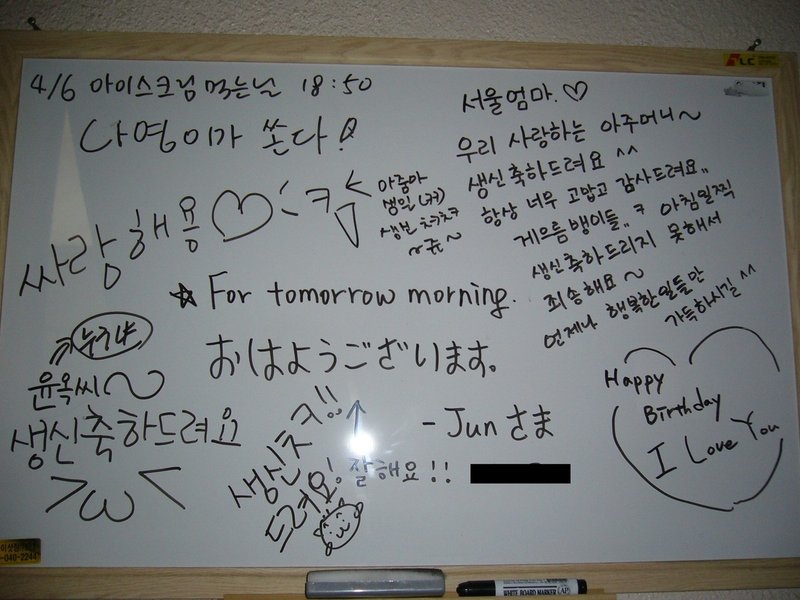 4/6 아이스크림 먹는날 18:50
나영이가 쏜다!
싸랑해용♡
ㅋ
아줌마
생일(커)
생신 ㅊㅋㅊㅋ
서울엄마.♡
우리 사랑하는 아주머니~
생신 축하드려요 ^^
항상 너무 고맙고 감사드려요..
게으름뱅이들.. ㅋ 아침일찍
생신축하드리지 못해서
죄송해요~
언제나 행복한일들만
가득하시길 ^^
☆ For tomorrow morning.
おはようございます。
- Junさま
누구냐
윤옥씨~
생신축하드려요
>ω<
생신ㅊㅋ!!
드려요!
잘해요!!
Happy
Birthday
I Love You
LC
040-2244
WHITE BOARD MARKER